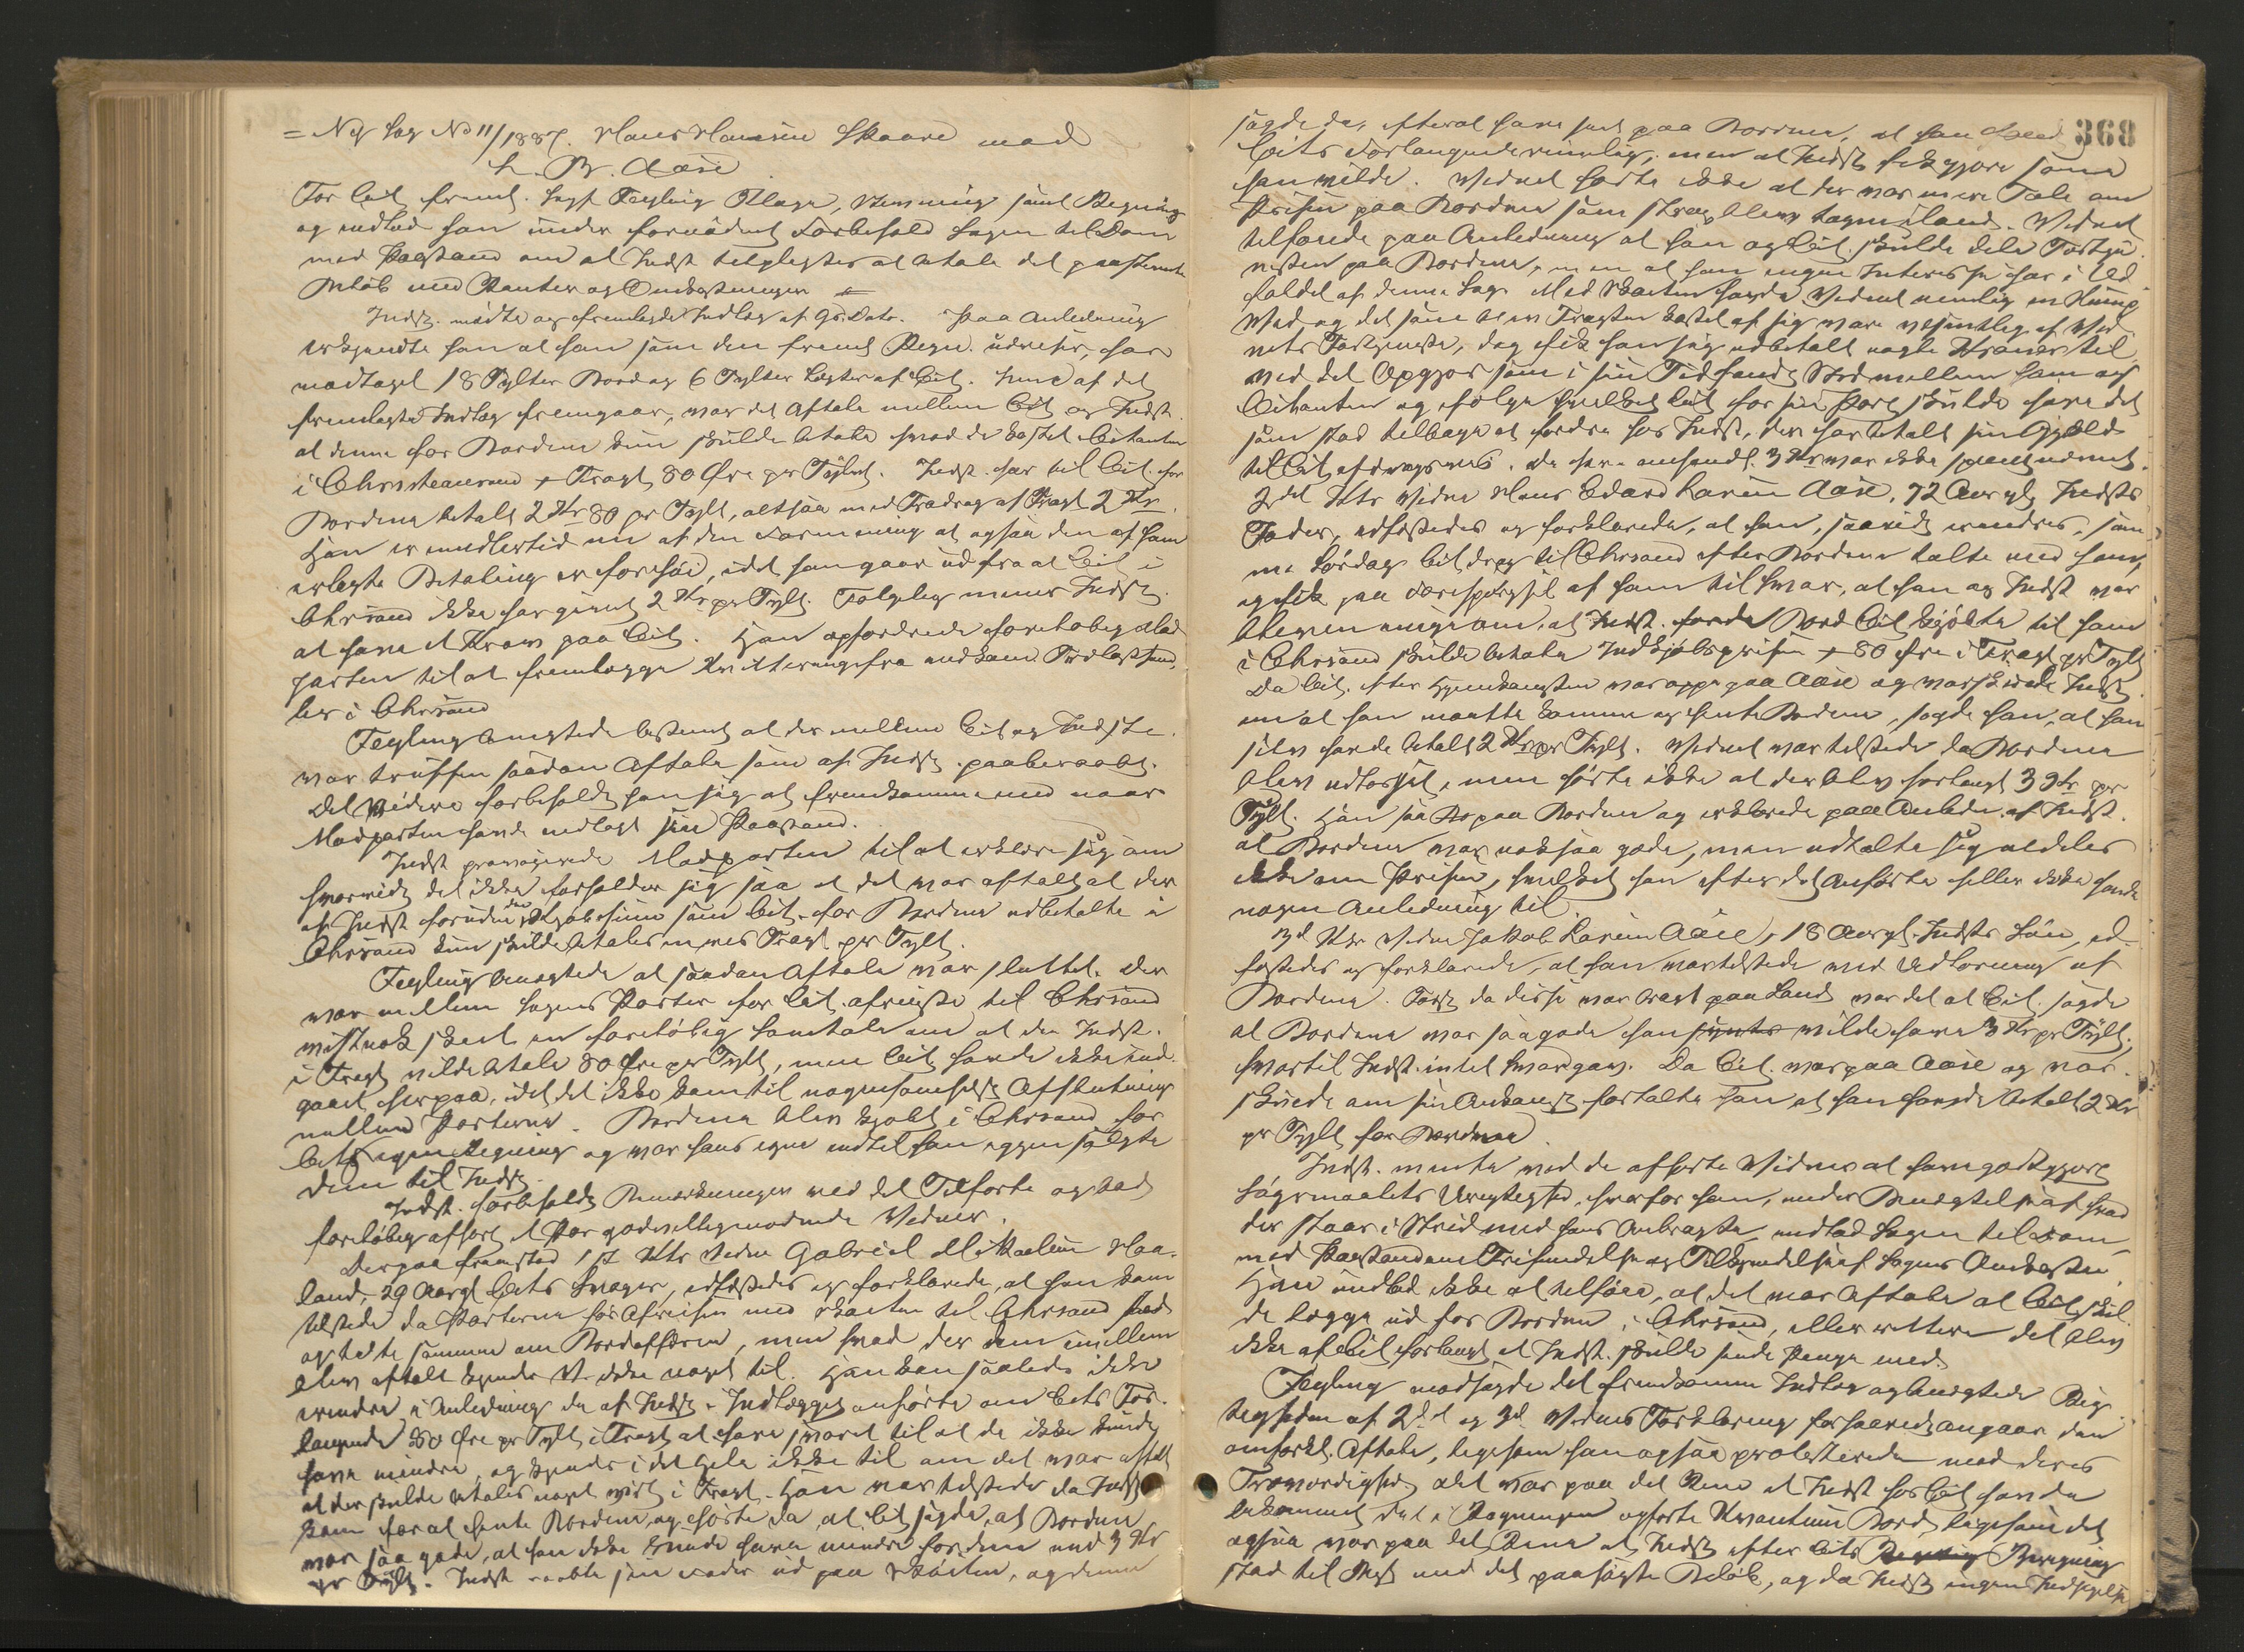 = Ny Sag No 11/1887. Hans Hansen Skaare mod
L. B. Aase
For Cit. fremst. Sagf. Feyling Klage, Stevning samt Regning
og indlod han under fornødent Forbehold Sagen til Dom
med Paastand om at Indst tilpligtes at betale det paastevnte
Beløb med Renter og Omkostninger
Indst. mødte og fremlagde Indlæg af Gs. Dato. Paa Anledning
erkjendte han at han som den fremlt Regn. udviser, har
modtaget 18 Tylter Bord og 6 Tylter Lægter af Cit. Som af det
fremlagte Indlæg fremgaar, var det Aftale mellem Cit og Indst.
at denne for Bordene kun skulde betale hvad de kostet Citanten
i Christiansand + Fragt 80 Øre pr Tylvt. Indst. har til Cit. for
Bordene betalt 2 Kr 80 pr Tylt, altsaa med Fradrag af Fragt 2 Kr.
Han er imidlertid nu af den Formening at ogsaa den af ham
erlagte Betaling er for høi, idet han gaar ud fra at Cit i
Chrsand ikke har givet 2 Kr pr Tylt. Følgelig mener Indst.
at have et Krav paa Cit. Han opfordrede foreløbig Mod
parten til at fremlægge Kvitteringer fra vedkom. Trælasthand
ler i Chrsand
Feyling benægtede bestemt at der mellem Cit og Indst.
var truffen saadan Aftale som af Indst. paaberaabt.
Det videre forbeholdt han sig at fremkomme med naar
Modparten havde nedlagt sin Paastand.
Indst provocerede Modparten til at erklære sig om
hvorvidt det ikke forholder sig saa at det var aftalt at der
af Indst foruden den Kjøbesum som Cit. for Bordene udbetalte i
Chrsand kun skulde betales Fragt pr Tylt.
Feyling benægtede at saadan Aftale var sluttet. Der
var mellem Sagens Parter før Cit. afreiste til Chrsand
vistnok skeet en foreløbig Samtale om at der Indst.
i Fragt vilde betale 80 Øre pr Tylt, men Cit. havde ikke ind
gaaet herpaa, idet det ikke kom til nogensomhelst Afslutning
mellem Parterne. Bordene blev kjøbt i Chrsand for
Cits egen Regning og var hans egne indtil han igjen solgte
dem til Indst.
Indst. forbeholdt Bemærkninger ved det Tilførte og bad
foreløbig afhørt et Par godvilligmødende Vidner.
Derpaa fremstod 1st Ktr Vidne Gabriel Mikaelsen Haa-
land, 29 Aar gl Cits Svoger, edfæstedes og forklarede, at han kom
tilstede da Parterne før Afreisen med Skøiten til Chrsand stod
og talte sammen om Bordaffæren, men hvad der dem imellem
blev aftalt kjender V. ikke noget til. Han kan saaledes ikke
erindre i Anledning da af Indst. i Indlægget anførte om Cits For-
langende 80 Øre pr Tylt i Fragt at have svaret til at de ikke kunde
have mindre, og kjender i det Hele ikke til om det var aftalt
at der skulde betales noget vist i Fragt. Han var tilstede da Indst
kom for at hente Bordene, og hørte da at Cit sagde, at Bordene
var saa gode, at han ikke kunde have mindre for dem end 3 Kr
pr Tylt. Indst raabte sin Fader ud paa Skøiten, og denne
368
sagde da, efterat have seet paa Bordene, at han fandt
Cits Forlangende rimelig, men at Indst fik gjøre som
han vilde. Vidnet hørte ikke at der var mere Tale om
Prisen paa Bordene som strax blev tagen iland. Vidnet
tilføiede paa Anledning at han og Cit. skulde dele Fortje
nesten paa Bordene, men at han ingen Interesse har i Ud
faldet af denne Sag. Med Skøiten havde Vidnet nemlig en Slump
Ved, og det som blev Fragten kastet af sig var væsentlig af Vid
nets Fortjeneste, dog fik han sig udbetalt nogle Kroner til
ved det Opgjør som i sin Tid fandt Sted mellem ham og
Citanten og ifølge hvilket Cit for sin Part skulde have det
som stod tilbage at fordre hos Indst, der har betalt sin Gjæld
til Cit afdragsvis. De her omhandl. 3 Kr var ikke
2det Ktr Vidne Hans Edvard Larsen Aase, 72 Aar gl Indsts
Fader, edfæstedes og forklarede, at han, saavidt erindres, sam
me Lørdag Cit. drog til Chrsand efter Bordene talte med ham,
og fik paa Forespørgsel af ham til Svar, at han og Indst var
bleven enige om, at Indst. for de Bord Cit kjøbte til ham
i Chrsand skulde betale Indkjøbsprisen + 80 Øre i Fragt pr Tylt
Da Cit. efter Hjemkomsten var oppe paa Aase og varskuede Indst
om at han maatte komme og hente Bordene, sagde han, at han
selv havde betalt 2 Kr pr Tylt. Vidnet var tilstede da Bordene
blev udlosset, men hørte ikke at der blev forlangt 3 Kr pr
Tylt. Han saa da paa Bordene og erklærede paa Anledn. af Indst.
at Bordene var nok saa gode, men udtalte sig aldeles
ikke om Prisen, hvilket han efter det Anførte heller ikke havde
nogen Anledning til.
3d Ktr Vidne Jakob Larsen Aase, 18 Aar gl. Indsts Søn, ed-
fæstedes og forklarede, at han var tilstede ved Udlosning af
Bordene. Først da disse var bragt paa Land var det at Cit. sagde
at Bordene var saa gode han syntes vilde have 3 Kr pr Tylt,
hvortil Indst. intet Svar gav. Da Cit. var paa Aase og var-
skuede om sin Ankomst fortalte han at han havde betalt 2 Kr
pr Tylt for Bordene.
Indst. mente ved de afhørte Vidner at have godtgjort
Søgsmaalets Urigtighed, hvorfor han, under Benægtelse af hvad
der staar i Strid med hans Anbragte, indlod Sagen til Dom
med Paastand om Frifindelse og Tilkjendelse af Sagens Omkostn.
Han undlod ikke at tilføie, at det var Aftale at Cit skul
de lægge ud for Bordene i Chrsand, eller rettere det blev
ikke af Cit forlangt at Indst. skulde sende Penge med.
Feyling modsagde det fremkomne Indlæg og benægtede Rig
tigheden af 2det og 3d Vidnes Forklaring forsaavidt angaar den
omforkl. Aftale, ligesom han ogsaa protesterede mod deres
Troværdighed. Det var paa det Rene at Indst hos Cit havde
bekommet det i Regningen opførte Kvantum Bord, ligesom det
ogsaa var paa det Rene at Indst efter Cits Beregning
stod til Rest med det paasagte Beløb, og da Indst ingen Indsigelse